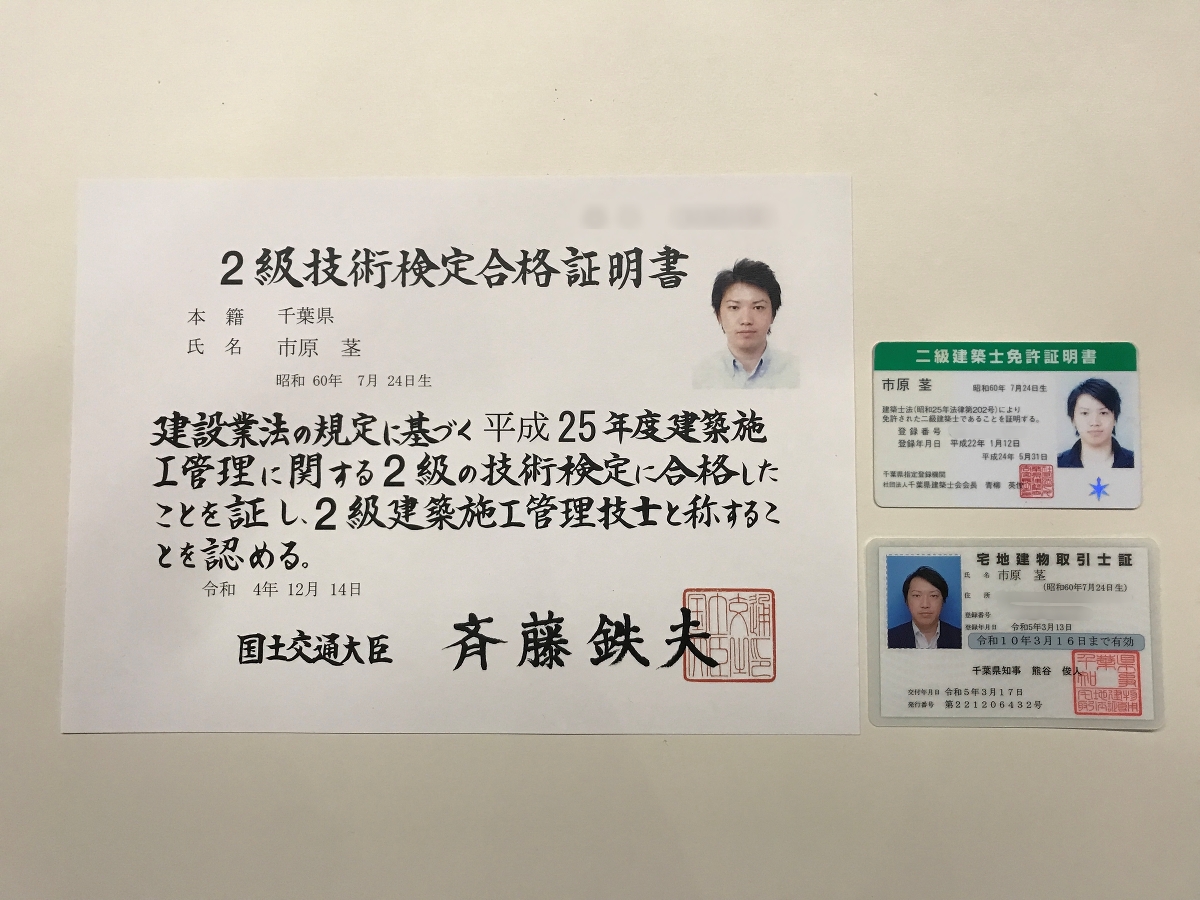 2級技術検定合格証明書
本籍 千葉県
氏名 市原 茎
昭和 60年 7月 24日生
建設業法の規定に基づく平成25年度建築施
工管理に関する2級の技術検定に合格した
ことを証し、2級建築施工管理技士と称するこ
とを認める。
令和 4年 12月 14日
国土交通大臣 斉藤鉄夫
二級建築士免許証明書
市原 茎 昭和60年 7月24日生
建築士法(昭和25年法律第202号)により
免許された二級建築士であることを証明する。
登録番号
登録年月日 平成22年 1月12日
平成24年 5月31日
千葉県指定登録機関
社団法人千葉県建築士会会長 青柳 英俊
宅地建物取引士証
氏名 市原 茎
(昭和60年7月24日生)
住所
登録番号
登録年月日 令和5年3月13日
令和10年3月16日まで有効
千葉県知事 熊谷 俊人
交付年月日 令和5年3月17日
発行番号 第221206432号